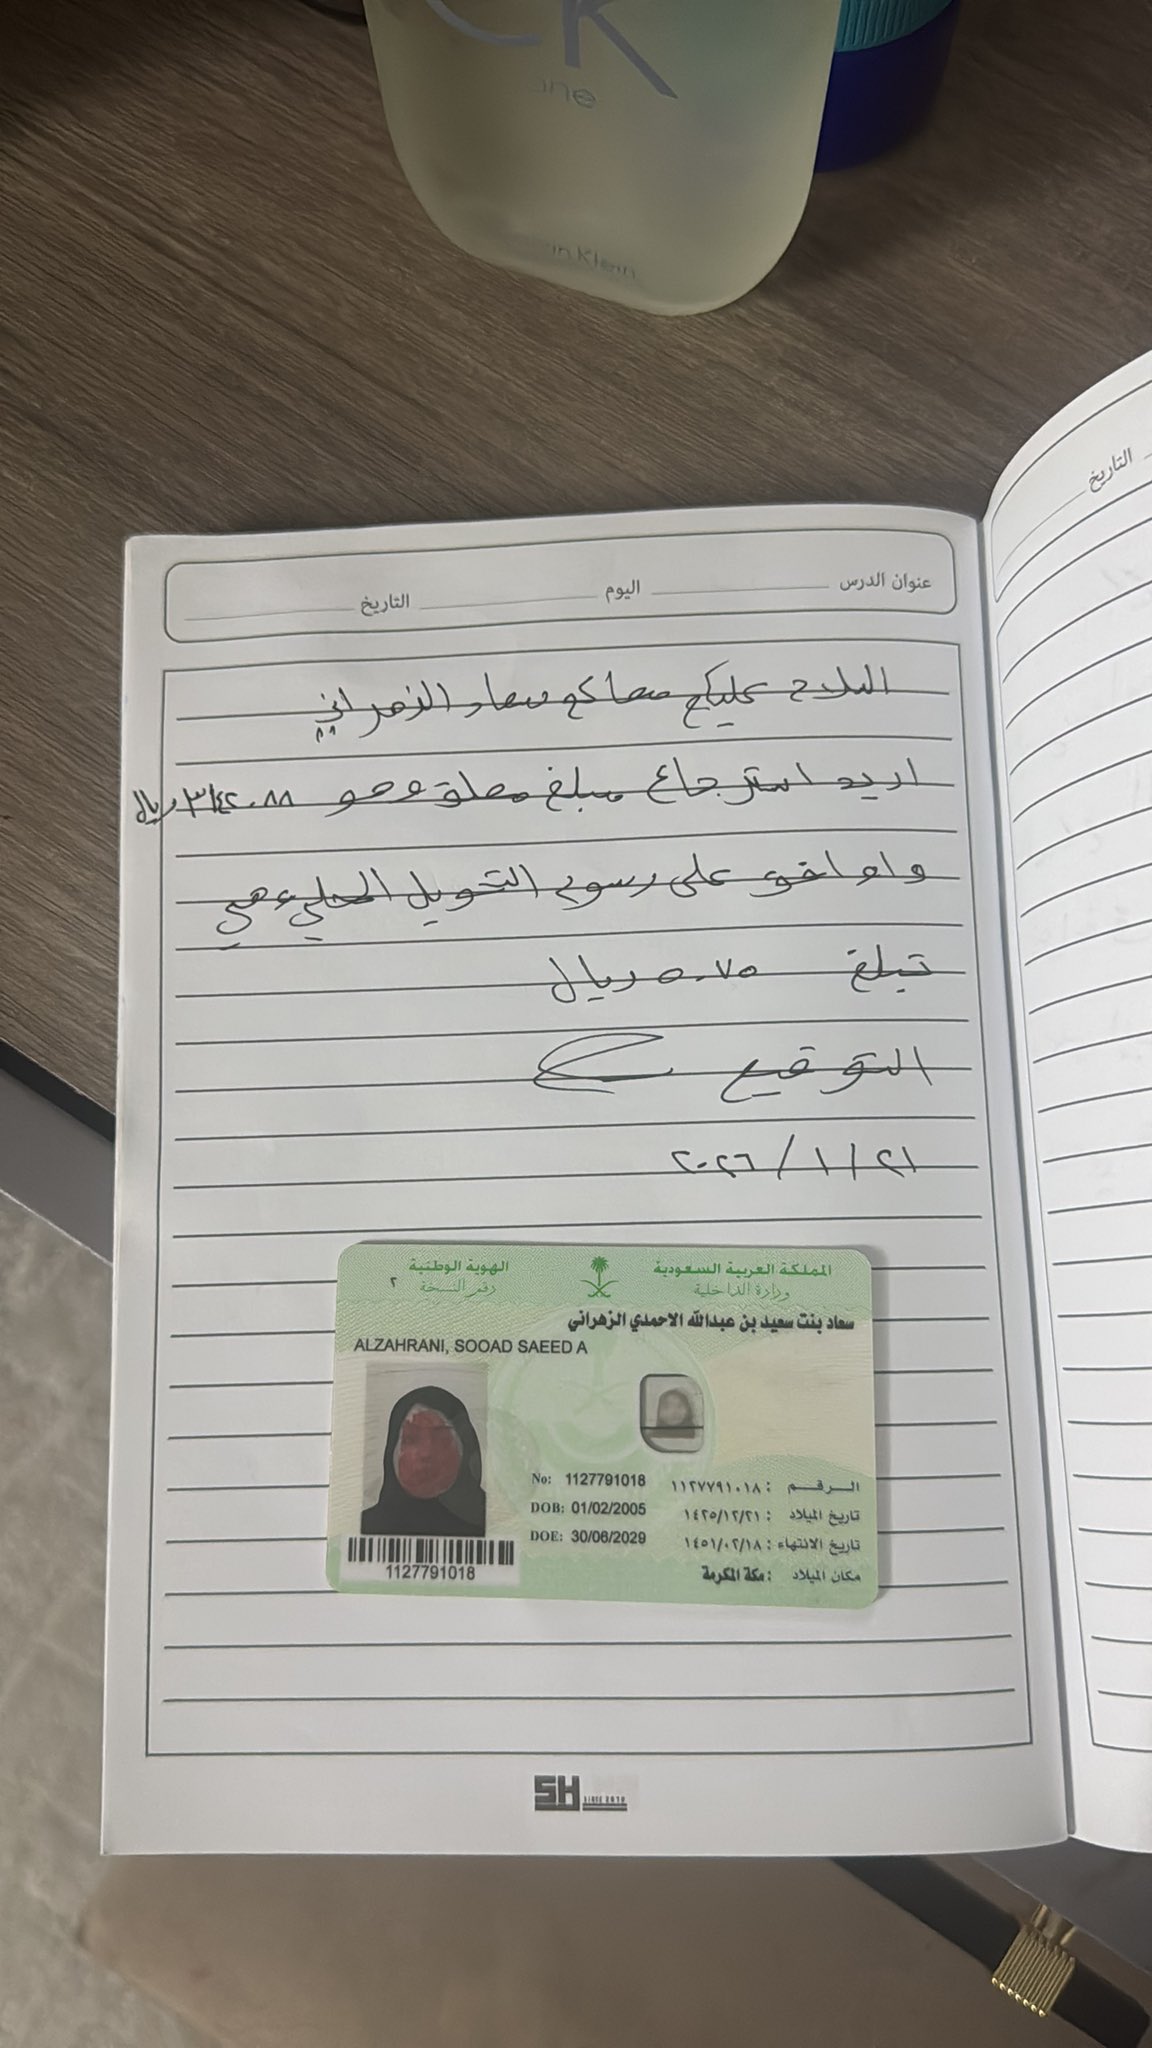 CK
one
in Klein
التاريخ
عنوان الدرس اليوم التاريخ
السلام عليكم معاكم سعاد الزهراني
اريد استرجاع مبلغ معلق وهو ٣١٤٢.٨٨ ريال
واوافق على رسوم التحويل المحلي وهي
تبلغ ٥.٧٥ ريال
التوقيع
٢١ / ١ / ٢٠٢٦
المملكة العربية السعودية
وزارة الداخلية
الهوية الوطنية
رقم النسخة ٢
سعاد بنت سعيد بن عبدالله الاحمدي الزهراني
ALZAHRANI, SOOAD SAEED A
No: 1127791018
الرقم : ١١٢٧٧٩١٠١٨
DOB: 01/02/2005
تاريخ الميلاد : ١٤٢٥/١٢/٢١
DOE: 30/06/2029
تاريخ الانتهاء : ١٤٥١/٠٢/١٨
مكان الميلاد : مكة المكرمة
1127791018
SH
SINCE 2010